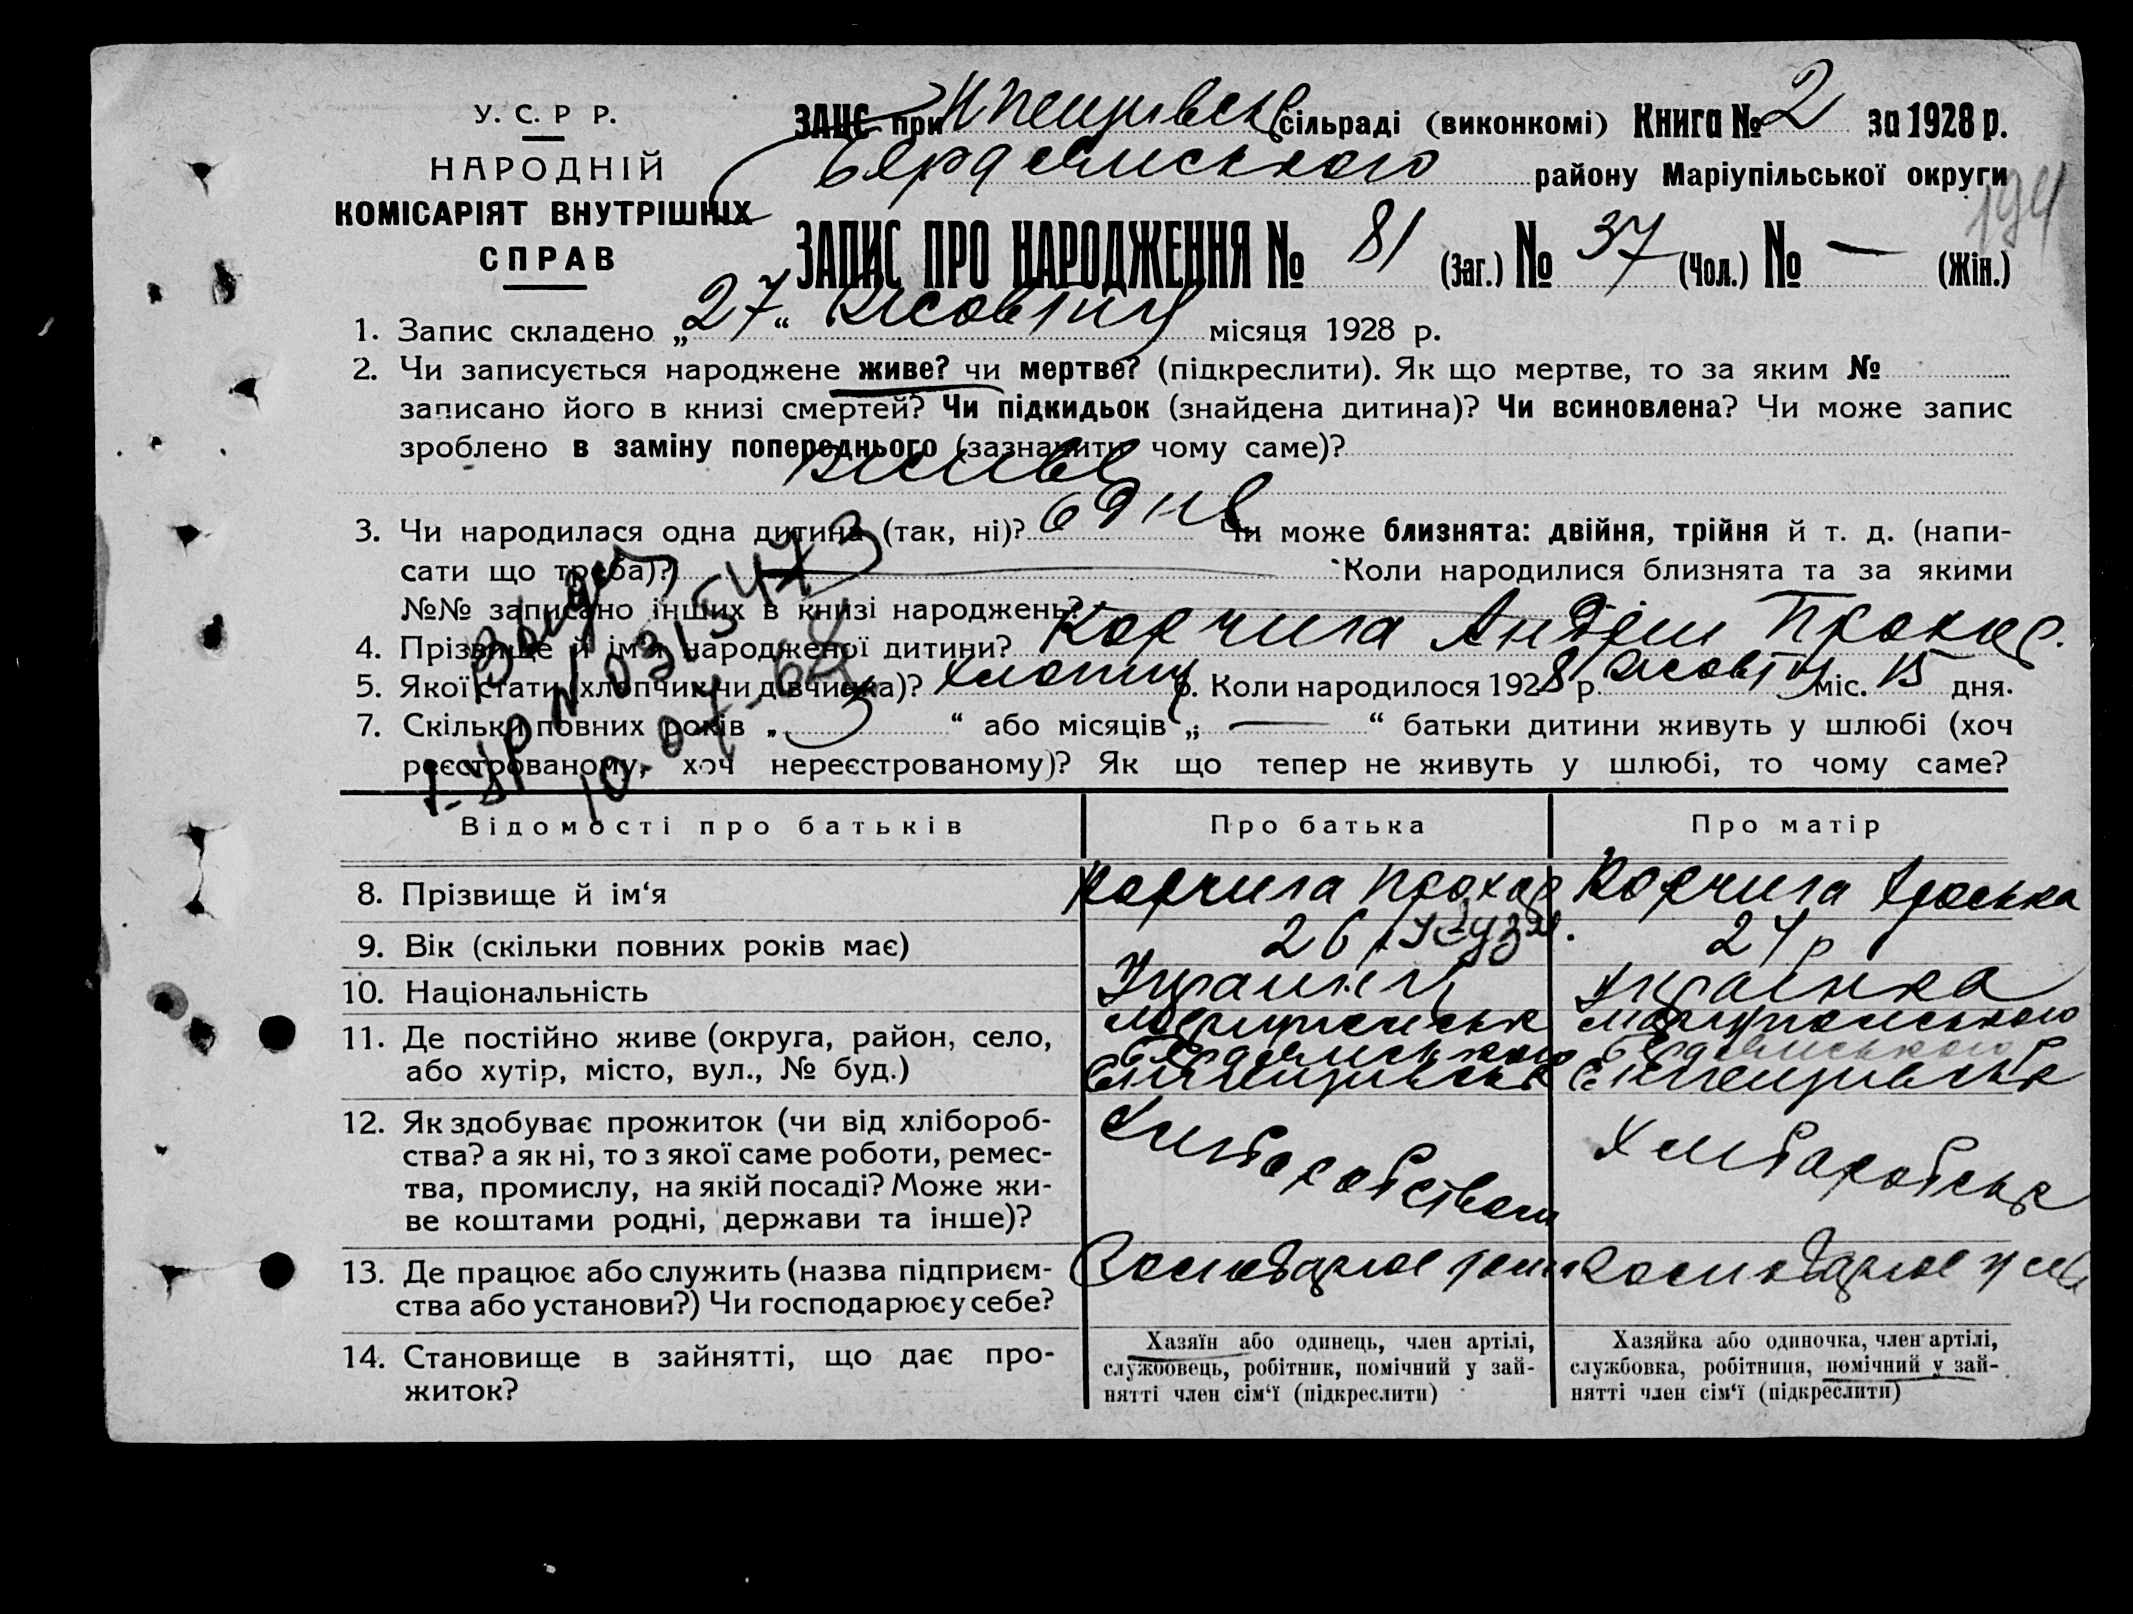 У. С. Р Р.
НАРОДНІЙ
КОМІСАРІЯТ ВНУТРІШНІХ
СПРАВ
ЗАЦС при сільраді (виконкомі) Книга № 2 за 1928 р.
району Маріупільської округи
194
ЗАПИС ПРО НАРОДЖЕННЯ № 81 (Заг.) № 37 (Чол.) № — (Жін.)
1. Запис складено „27“ Жовтня місяця 1928 р.
2. Чи записується народжене живе? чи мертве? (підкреслити). Як що мертве, то за яким №
записано його в книзі смертей? Чи підкидьок (знайдена дитина)? Чи всиновлена? Чи може запис
зроблено в заміну попереднього (зазначити чому саме)?
живе
3. Чи народилася одна дитина (так, ні)? одне Чи може близнята: двійня, трійня й т. д. (напи-
сати що треба)? — Коли народилися близнята та за якими
№№ записано інших в книзі народжень?
4. Прізвище й ім'я народженої дитини? Корчига Андрій Прохор.
5. Якої стати (хлопчик чи дівчинка)? хлопець 6. Коли народилося 1928 р. жовтня міс. 15 дня.
7. Скільки повних років „3“ або місяців „—“ батьки дитини живуть у шлюбі (хоч
реєстрованому, хоч нереєстрованому)? Як що тепер не живуть у шлюбі, то чому саме?
Відомості про батьків Про батька Про матір
8. Прізвище й ім‘я Корчига Прохор Корчига
9. Вік (скільки повних років має) 26 24 р
10. Національність Українець Українка
11. Де постійно живе (округа, район, село,
або хутір, місто, вул., № буд.)
12. Як здобуває прожиток (чи від хлібороб-
ства? а як ні, то з якої саме роботи, ремес-
тва, промислу, на якій посаді? Може жи-
ве коштами родні, держави та інше)?
Хліборобством
13. Де працює або служить (назва підприєм-
ства або установи?) Чи господарює у себе?
14. Становище в зайнятті, що дає про-
житок?
Хазяїн або одинець, член артілі,
службовець, робітник, помічний у зай-
нятті член сім‘ї (підкреслити)
Хазяйка або одиночка, член артілі,
службовка, робітниця, помічний у зай-
нятті член сім‘ї (підкреслити)